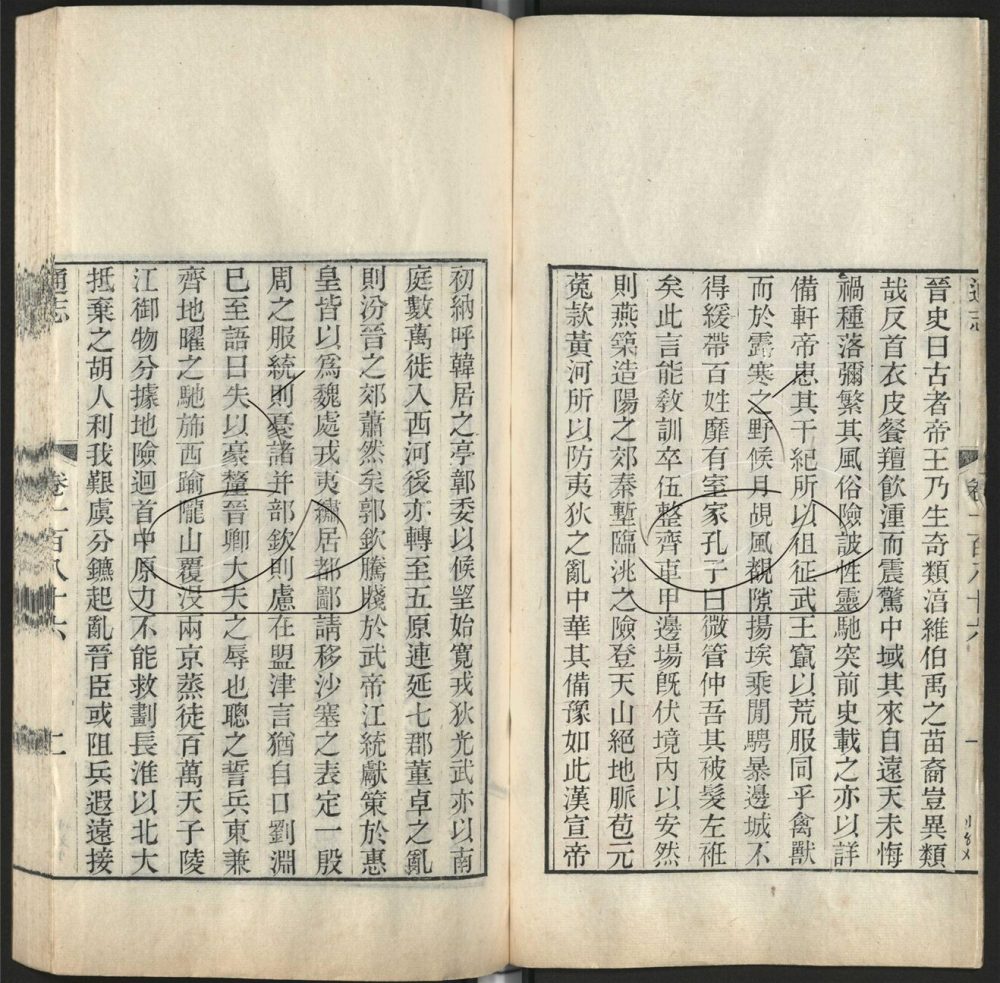 晉史曰古者帝王乃生奇類淳維伯禹之苗裔豈異類
哉反首衣皮餐羶飲湩而震驚中域其來自遠天未悔
禍種落彌繁其風俗險詖性靈馳突前史載之亦以詳
備軒帝患其干紀所以徂征武王竄以荒服同乎禽獸
而於露寒之野候月覘風覩隙揚埃乘閒騁暴邊城不
得緩帶百姓靡有室家孔子曰微管仲吾其被髮左袵
矣此言能敎訓卒伍整齊車甲邊場旣伏境內以安然
則燕築造陽之郊秦塹臨洮之險登天山絕地脈苞元
菟款黃河所以防夷狄之亂中華其備豫如此漢宣帝
初納呼韓居之亭鄣委以候望始寬戎狄光武亦以南
庭數萬徙入西河後亦轉至五原連延七郡董卓之亂
則汾晉之郊蕭然矣郭欽騰牋於武帝江統獻策於惠
皇皆以爲魏處戎夷繡居都鄙請移沙塞之表定一殷
周之服統則憂諸并部欽則慮在盟津言猶自口劉淵
已至語曰失以豪釐晉卿大夫之辱也聰之誓兵東兼
齊地曜之馳斾西踰隴山覆沒兩京蒸徒百萬天子陵
江御物分據地險迴首中原力不能救劃長淮以北大
抵棄之胡人利我艱虞分鑣起亂晉臣或阻兵遐遠接
通志 卷一百八十六 二